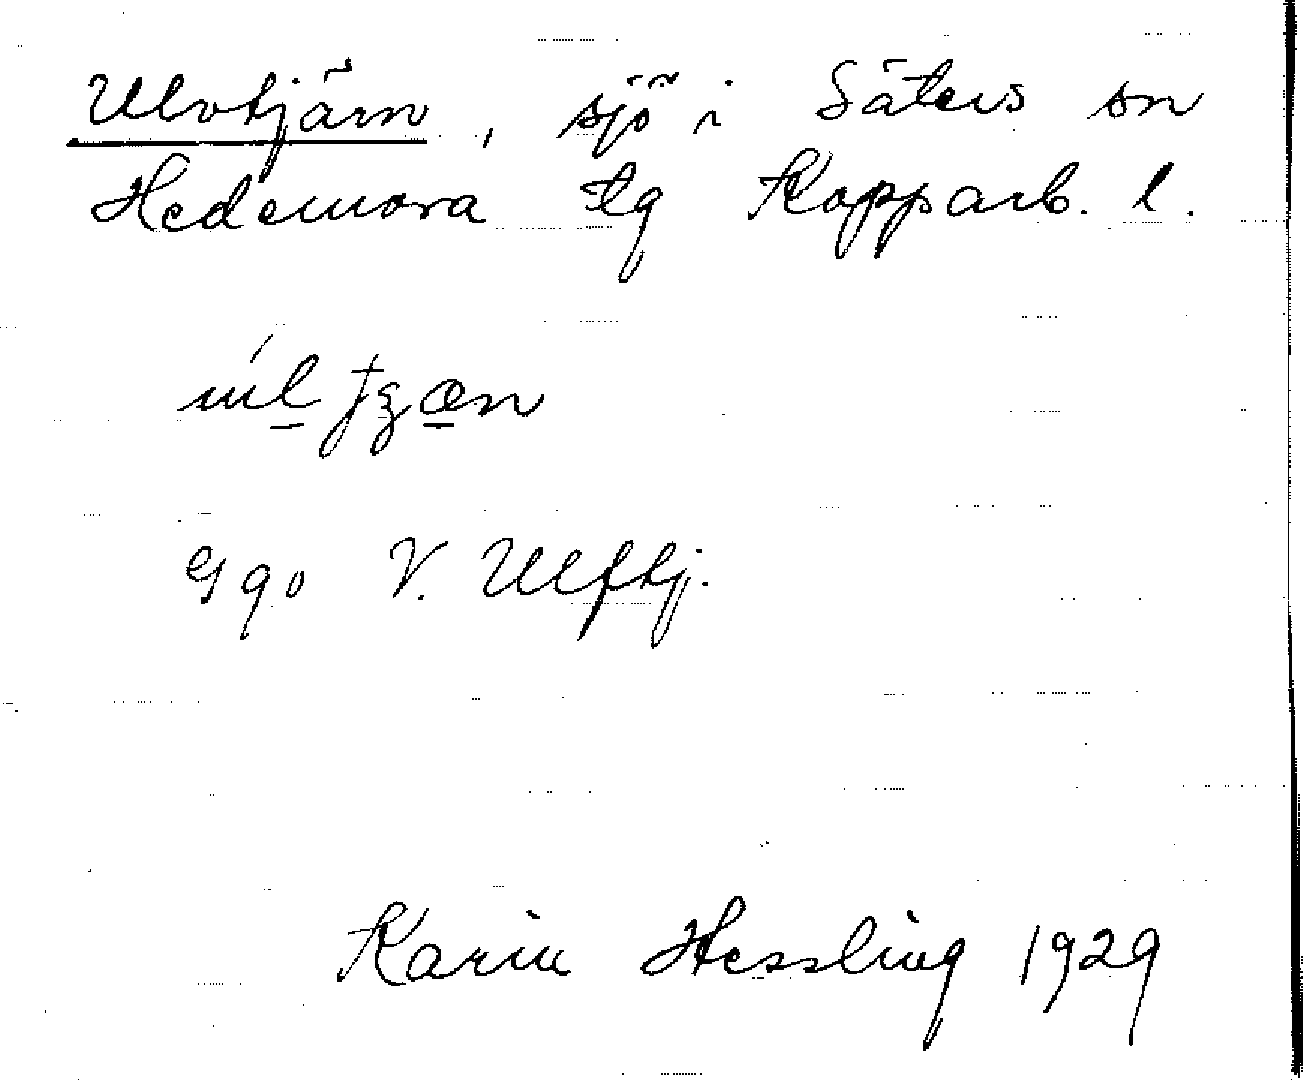 Ulvtjärn, sjö i Säters sn
Hedemora tg Kopparb. l.
Ggo V. Ulftj.
Karin Hessling 1929